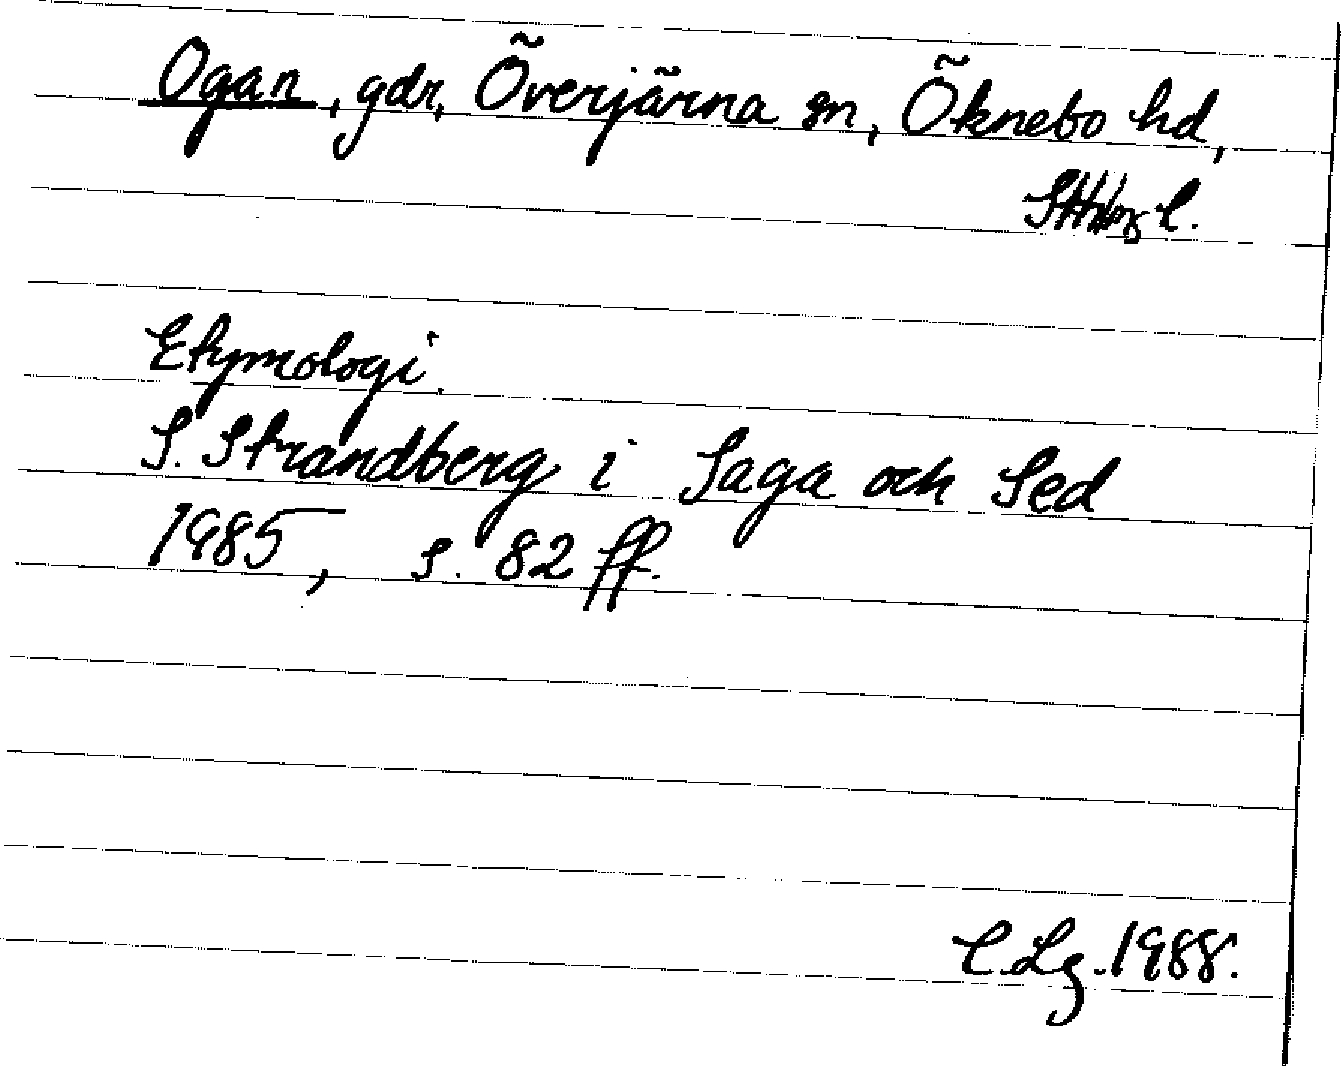 Ogan, gdr, Överjärna sn, Öknebo hd,
l.
Etymologi.
S. Strandberg i Saga och Sed
1985, s. 82 ff.
C.Lg. 1988.